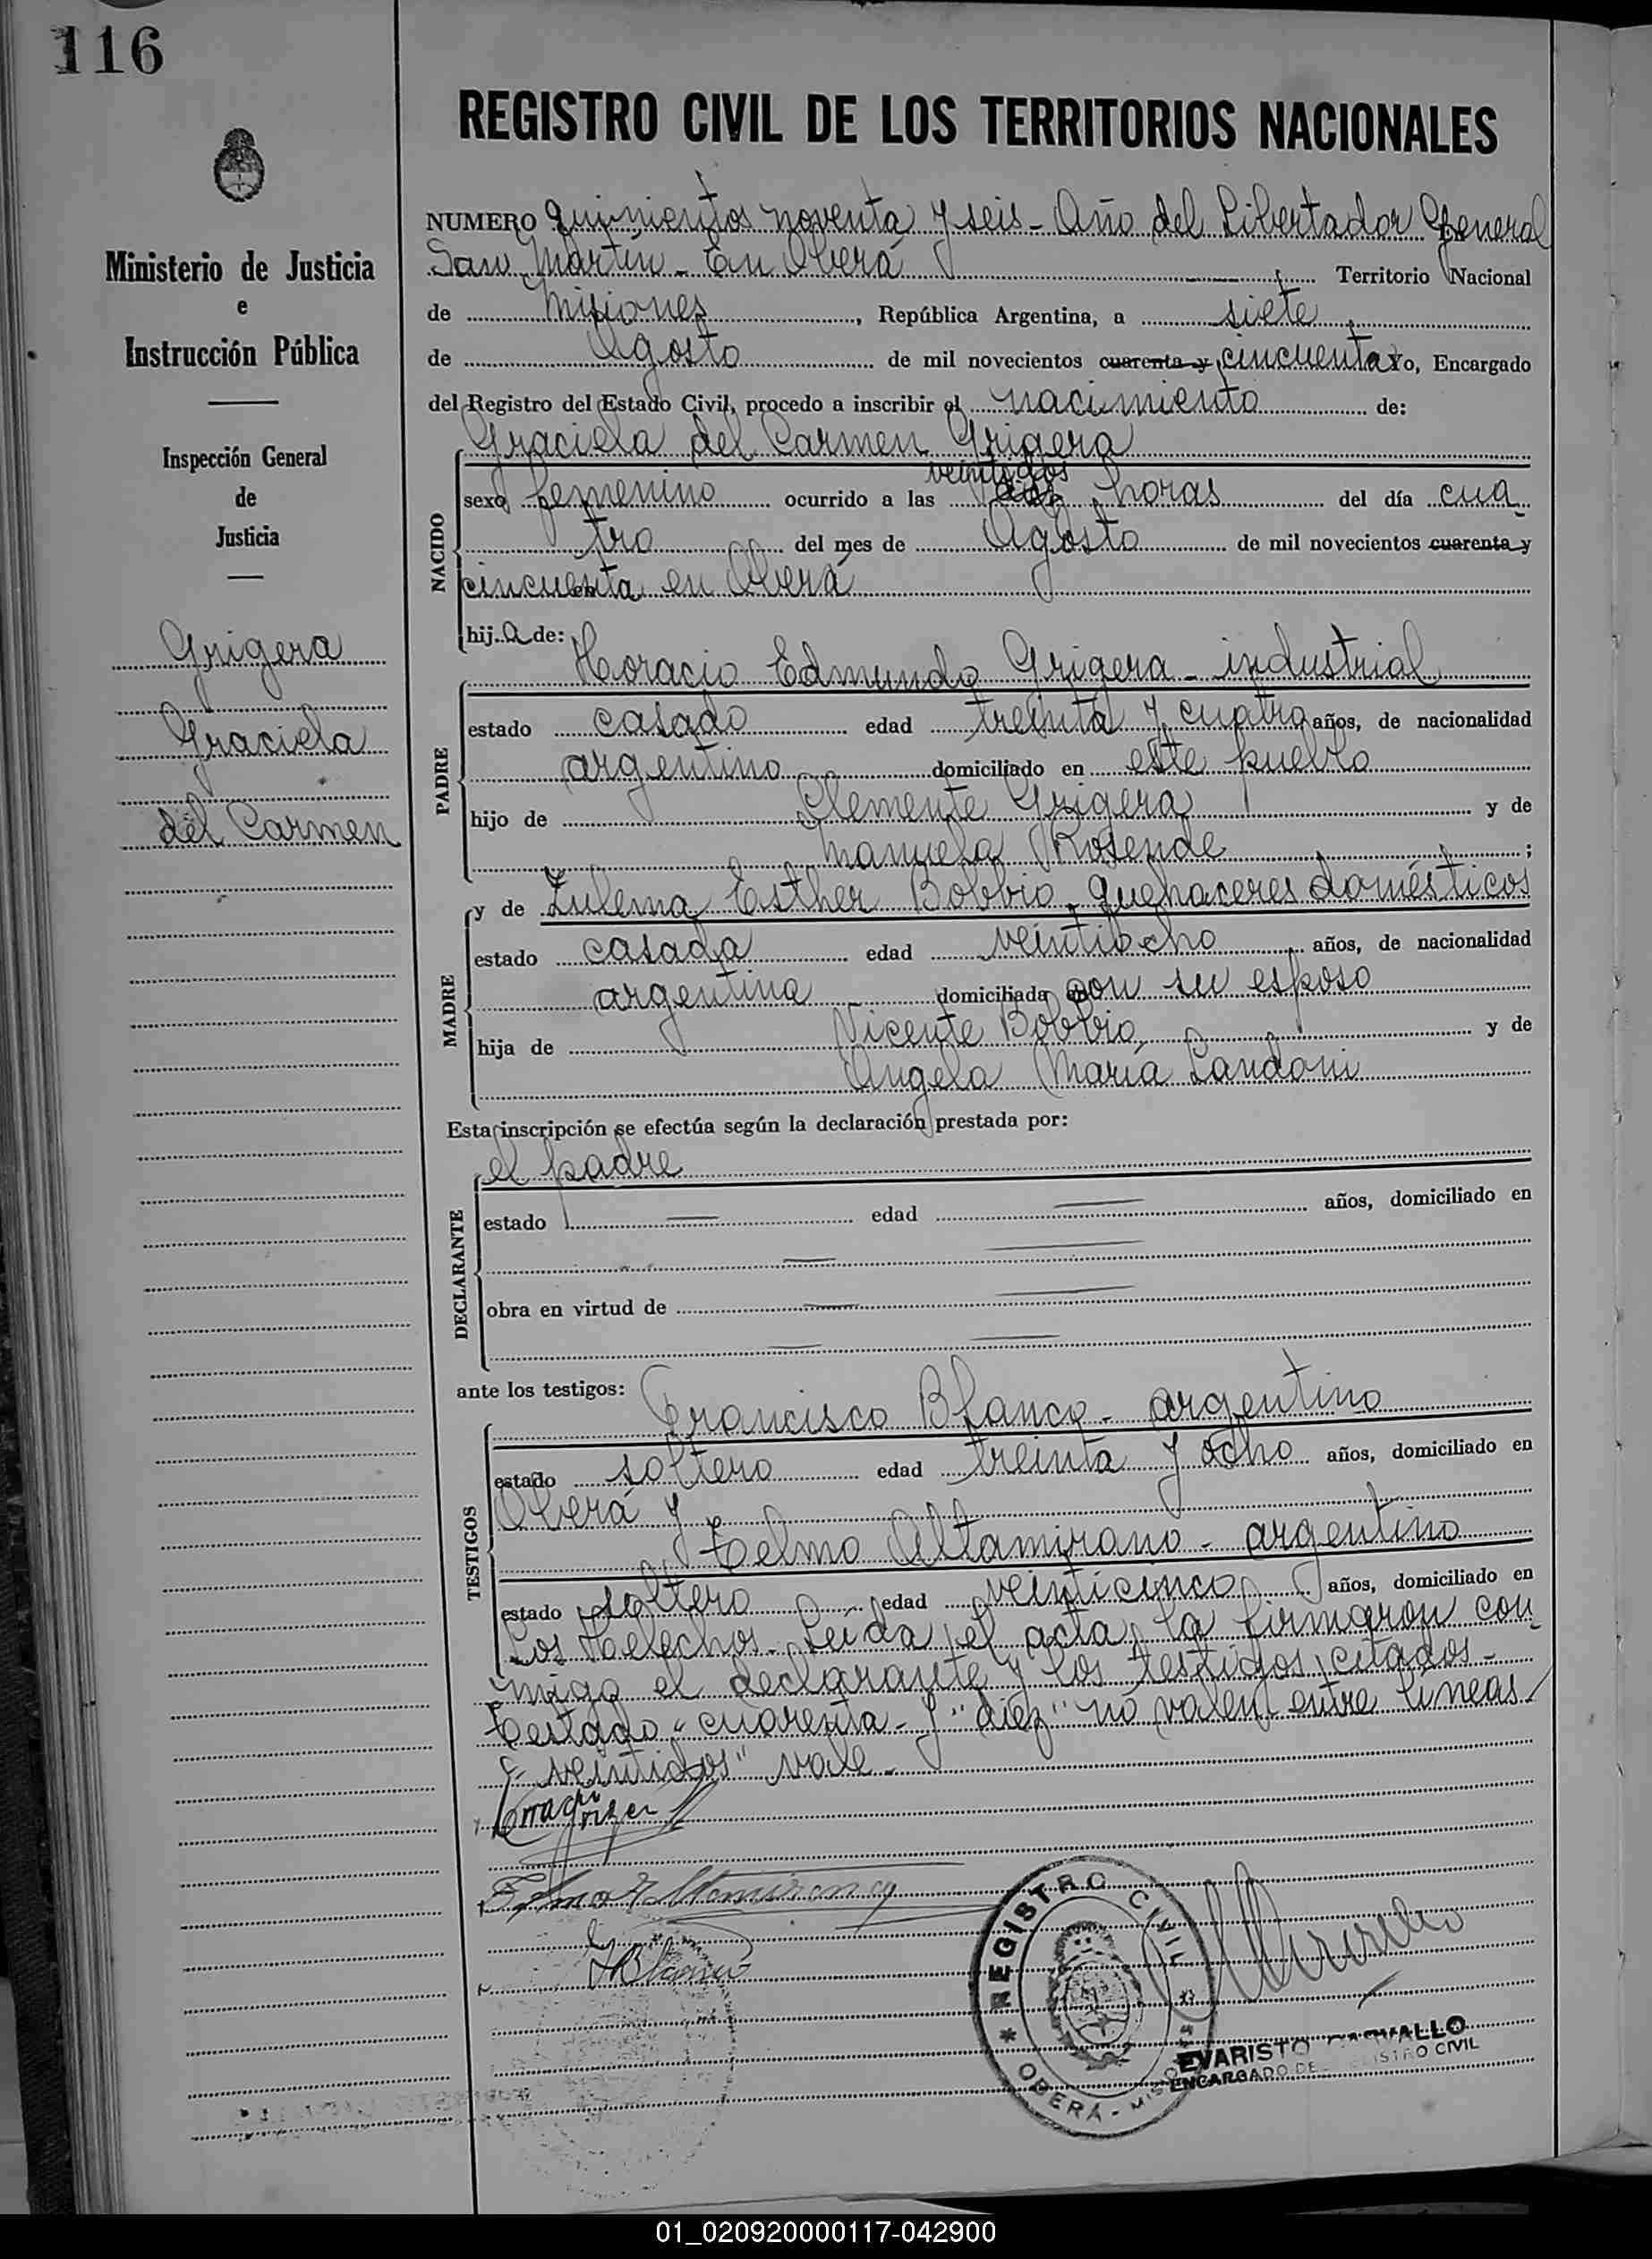 116
REGISTRO CIVIL DE LOS TERRITORIOS NACIONALES
Ministerio de Justicia
e
Instrucción Pública
Inspección General
de
Justicia
Grigera
Graciela
del Carmen
NUMERO quinientos noventa y seis - Año del Libertador General
San Martín - En Oberá Territorio Nacional
de Misiones, República Argentina, a siete
de Agosto de mil novecientos cuarenta y cincuenta Yo, Encargado
del Registro del Estado Civil, procedo a inscribir el nacimiento de:
Graciela del Carmen Grigera
veintidos
NACIDO
sexo femenino ocurrido a las diez horas del día cua
tro del mes de Agosto de mil novecientos cuarenta y
cincuenta en Oberá
hija de:
PADRE
Horacio Edmundo Grigera - industrial
estado casado edad treinta y cuatro años, de nacionalidad
argentino domiciliado en este pueblo
hijo de Clemente Grigera y de
Manuela Rosende;
MADRE
y de Zulema Esther Bobbio - quehaceres domésticos
estado casada edad veintiocho años, de nacionalidad
argentina domiciliada con su esposo
hija de Vicente Bobbio y de
Angela María Landoni
Esta inscripción se efectúa según la declaración prestada por:
DECLARANTE
el padre
estado edad años, domiciliado en
obra en virtud de
ante los testigos:
TESTIGOS
Francisco Blanco - argentino
estado soltero edad treinta y ocho años, domiciliado en
Oberá y
Telmo Altamirano - argentino
estado soltero edad veinticinco años, domiciliado en
Los Helechos - Leída el acta, la firmaron con
migo el declarante y los testigos citados -
Testado "cuarenta - y "diez" no valen entre líneas
"veintidos" vale -
REGISTRO CIVIL
OBERÁ - MISIONES
EVARISTO
ENCARGADO DEL REGISTRO CIVIL
01_020920000117-042900